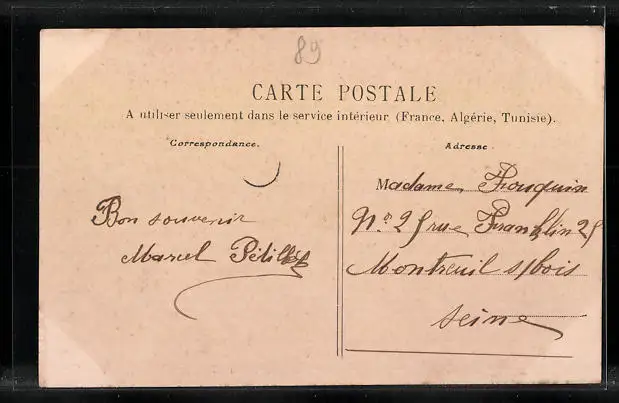 89
CARTE POSTALE
A utiliser seulement dans le service intérieur (France, Algérie, Tunisie).
Correspondance.
Adresse
Bon souvenir
Marcel
Madame, Fouquin
N° 25 rue Franklin 25
Montreuil s/bois
Seine